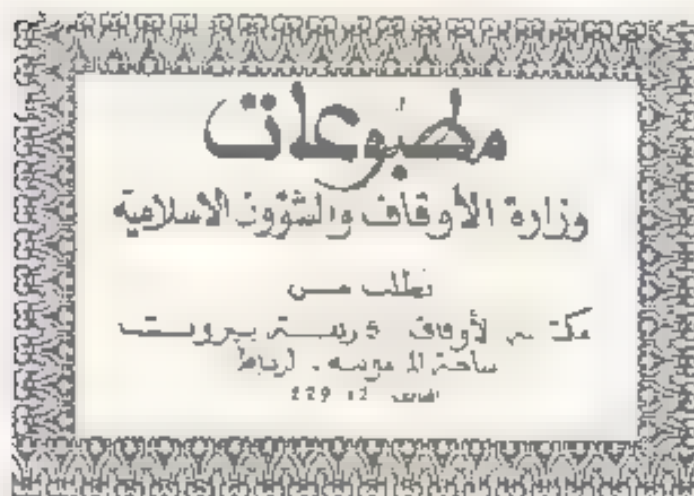 مطبوعات
وزارة الأوقاف والشؤون الاسلامية
تطلب من
مكتبة الأوقاف 5 زنقة بيروت
ساحة المامونية . الرباط
الهاتف 229